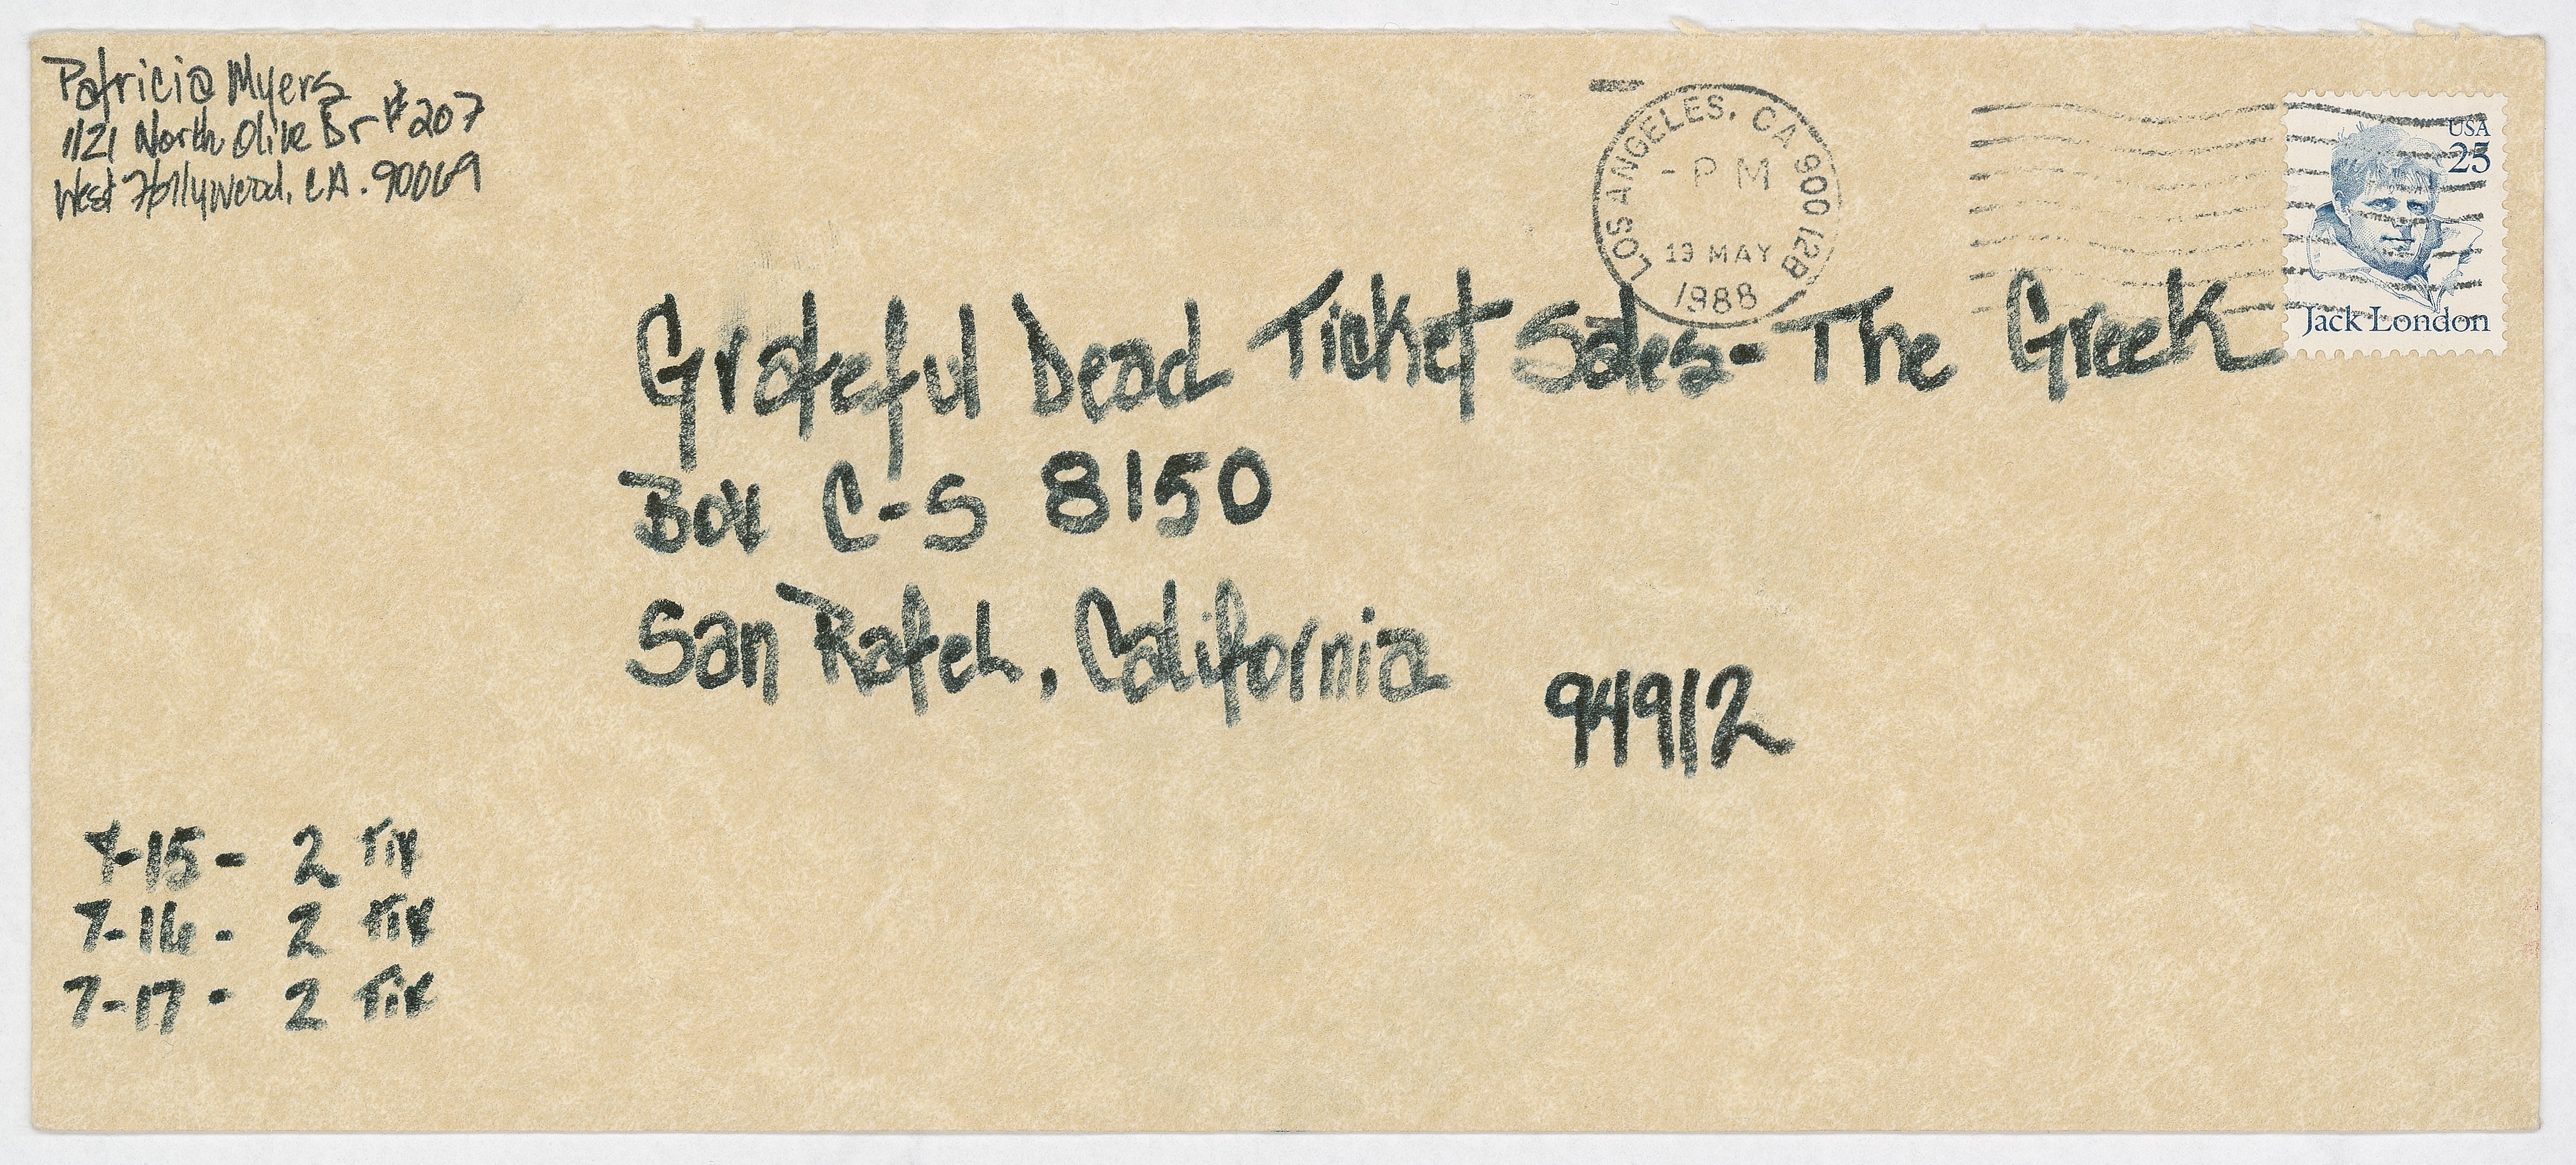 Patricia Myers
1121 North Olive Dr #207
West Hollywood, CA. 90069
LOS ANGELES, CA 900 12B
- PM
19 MAY
1988
USA
25
Jack London
Grateful Dead Ticket Sales - The Greek
Box C-S 8150
San Rafel, California
94912
7-15 - 2 Tix
7-16 - 2 Tix
7-17 - 2 Tix